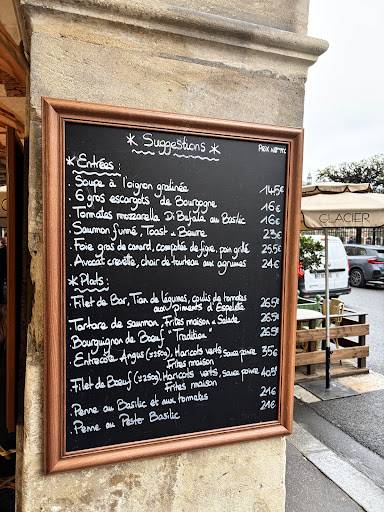 * Suggestions *
PRIX NETTC
* Entrées :
. Soupe à l'oignon gratinée 145€
. 6 gros escargots de Bourgogne 16€
. Tomates mozzarella Di Bufala au Basilic 16€
. Saumon fumé, Toast & Beurre 23€
. Foie gras de canard, compotée de figue, pain grillé 25,5€
. Avocat crevette, chair de tourteau aux agrumes 24€
* Plats :
. Filet de Bar, Tian de légumes, coulis de tomates 26,50
aux Piments d'Espelette
. Tartare de saumon, Frites maison & Salade 26,50
. Bourguignon de Bœuf "Tradition" 26,50
. Entrecôte Angus (≃250g), Haricots verts, sauce poivre 35€
Frites maison
. Filet de Bœuf (≃250g), Haricots verts, sauce poivre 40,50
Frites maison
. Penne au Basilic et aux tomates 21€
. Penne au Pesto Basilic 21€
GLACIER